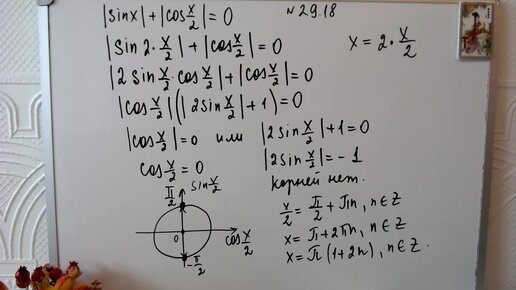 |sinx| + |cos x/2| = 0 №29.18
|sin 2·x/2| + |cos x/2| = 0 x = 2·x/2
|2 sin x/2 · cos x/2| + |cos x/2| = 0
|cos x/2|(|2sin x/2| + 1) = 0
|cos x/2| = 0 или |2 sin x/2| + 1 = 0
cos x/2 = 0 |2sin x/2| = -1
корней нет.
π/2 sin x/2
0 cos x/2
-π/2
x/2 = π/2 + πn, n∈Z
x = π + 2πn, n∈Z
x = π(1+2n), n∈Z.